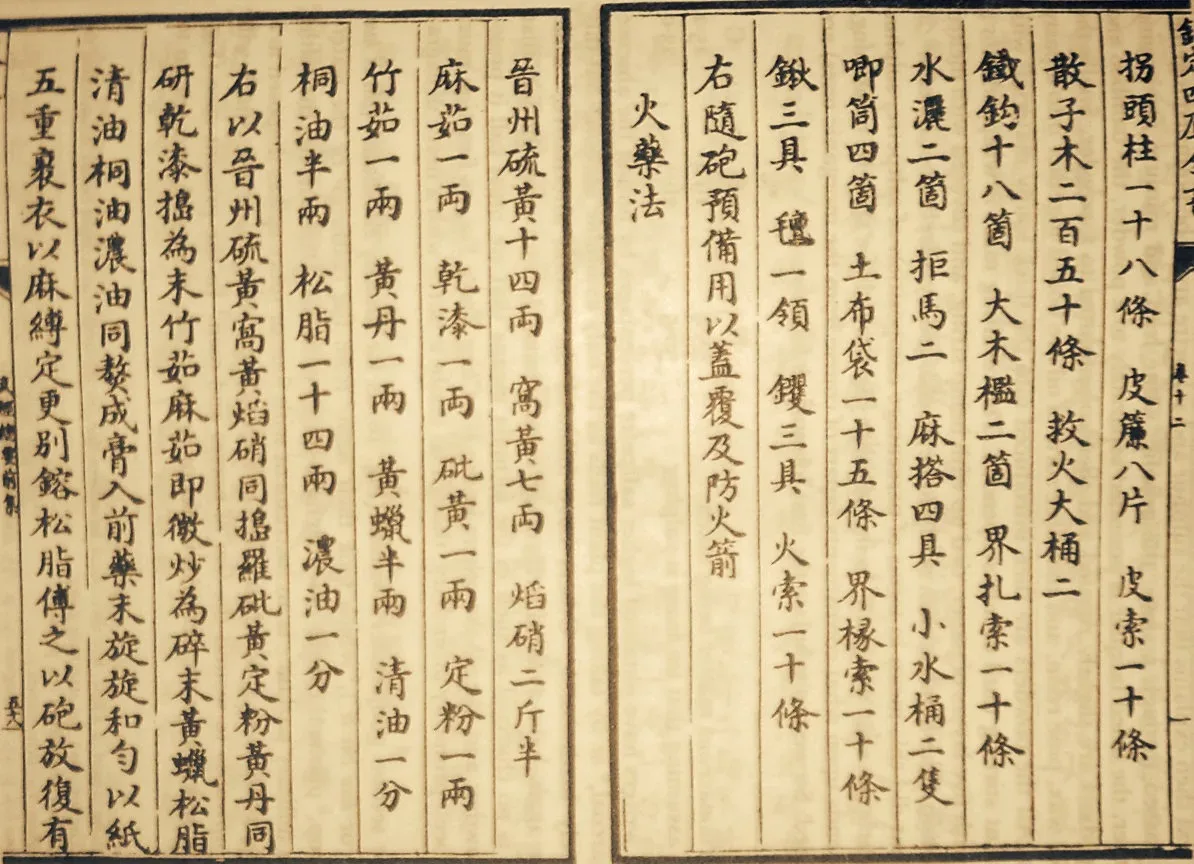 拐頭柱一十八條　皮簾八片　皮索一十條
散子木二百五十條　救火大桶二
鐵鈎十八箇　大木檻二箇　界扎索一十條
水濼二箇　拒馬二　麻搭四具　小水桶二隻
唧筒四箇　土布袋一十五條　界椽索一十條
鍬三具　氊一領　钁三具　火索一十條
右隨砲預備用以蓋覆及防火箭
火藥法
晉州硫黃十四兩　窩黃七兩　焰硝二斤半
麻茹一兩　乾漆一兩　砒黃一兩　定粉一兩
竹茹一兩　黃丹一兩　黃蠟半兩　清油一分
桐油半兩　松脂一十四兩　濃油一分
右以晉州硫黃窩黃焰硝同搗羅砒黃定粉黃丹同
研乾漆搗為末竹茹麻茹即微炒為碎末黃蠟松脂
清油桐油濃油同熬成膏入前藥末旋旋和勻以紙
五重裹衣以麻縛定更別鎔松脂傅之以砲放復有